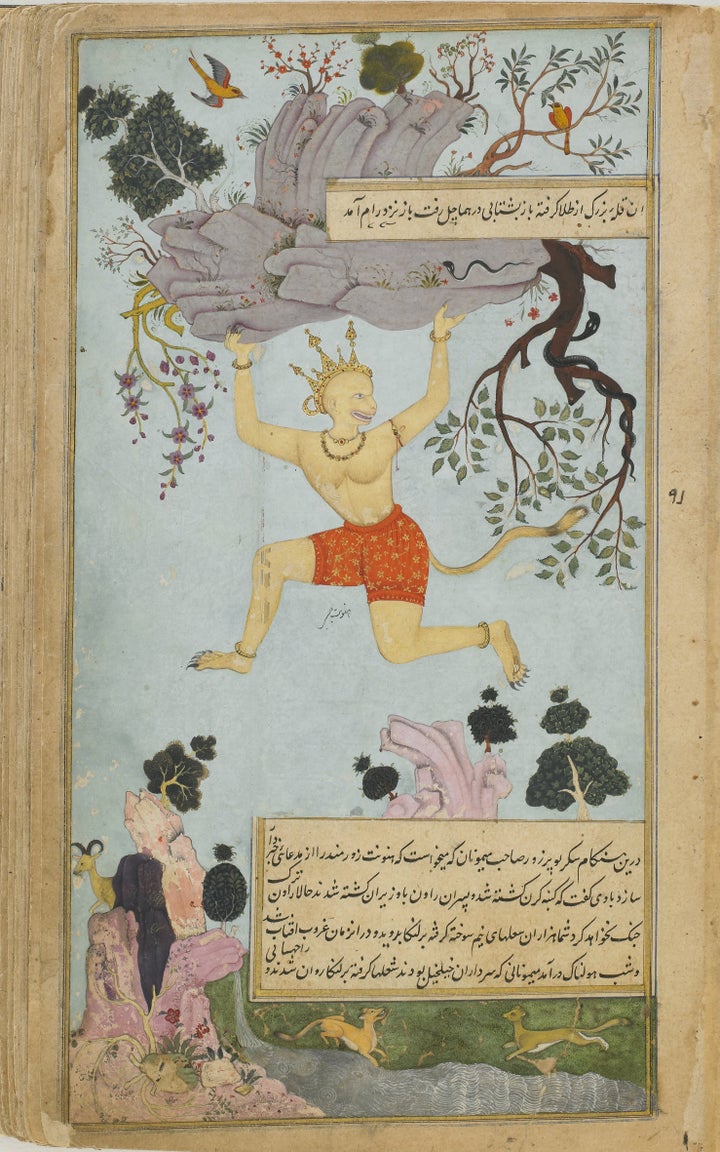 آن قلهٔ بزرگ از طلا گرفته باز بشتابی در هماچل رفت باز نزد رام آمد
هنونت
۹۱
درین هنگام سکریو پرزور صاحب میمونان که میخواست که هنونت زورمند را از مدعای خبردار
سازد باوی گفت که کنبه کرن کشته شد و پسران راون با وزیران کشته شدند حالا راون ترک
جنگ بخواهد کرد شما هزاران شعلهای نیم سوخته گرفته بر لنکا بروید و در انزمان غروب افتاب شد
و شب هولناک درآمد میمونانی که سرداران خیلخیل بودند شعلها گرفته بر لنکا روان شدند و